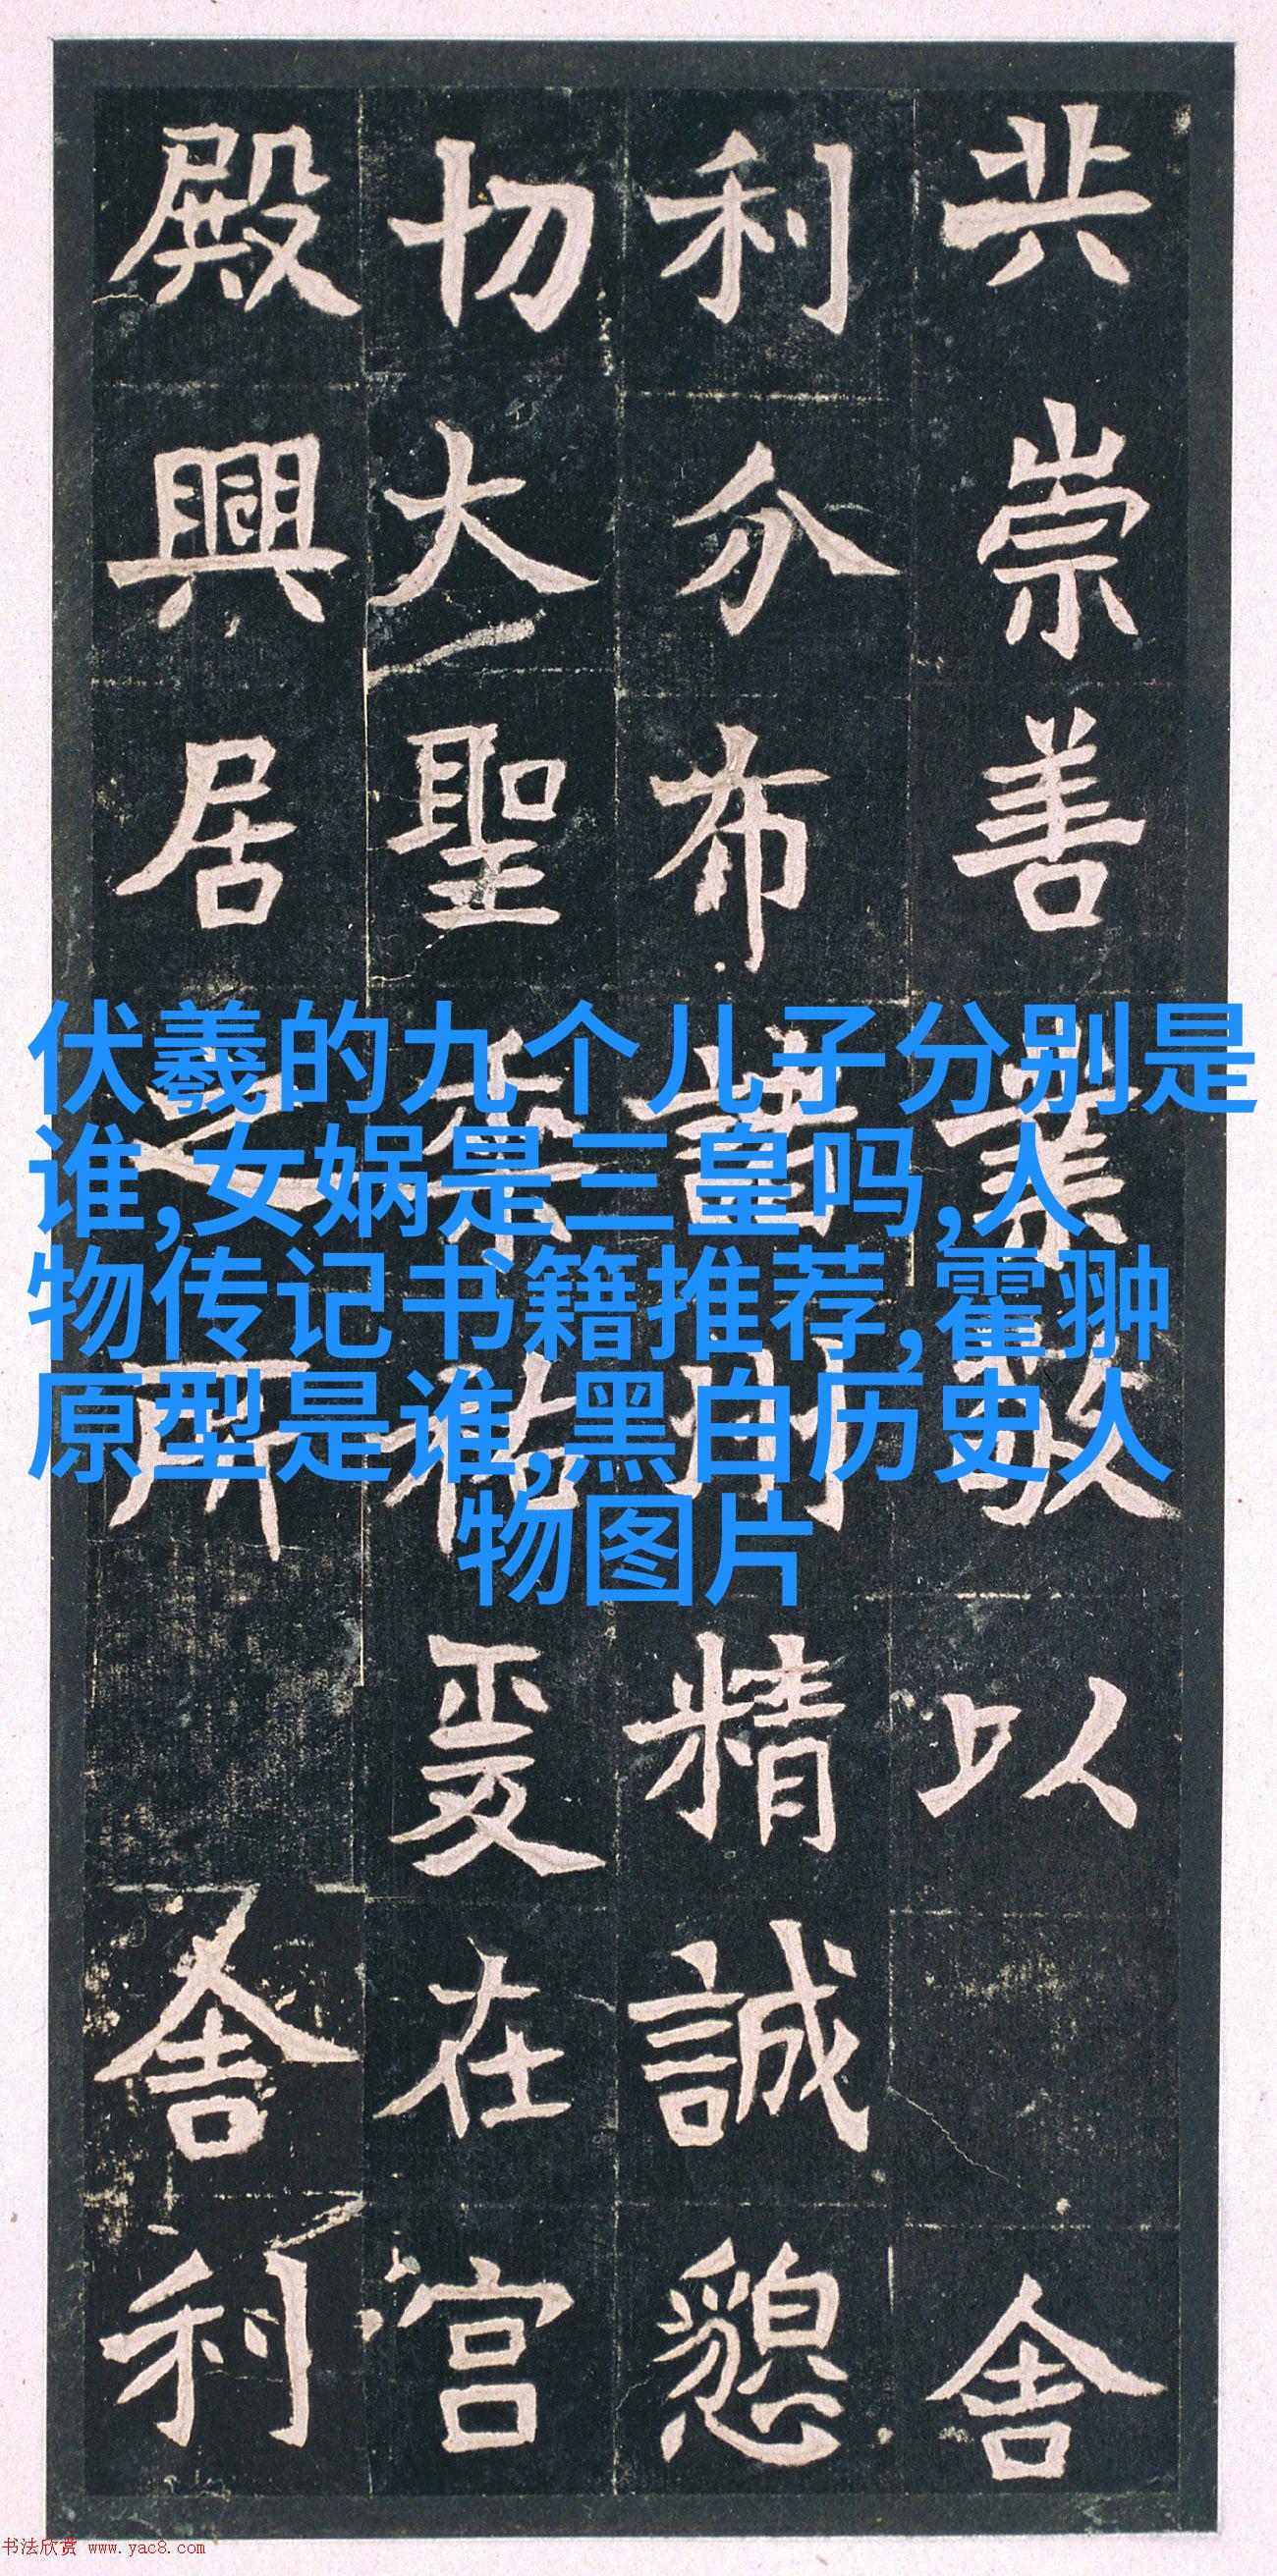 共崇善業敬以舍
利分布諸州精誠懇
切大聖垂祐爰在宫
殿興居之所舍利
伏羲的九个儿子分别是
谁,女娲是三皇吗,人
物传记书籍推荐,霍翀
原型是谁,黑白历史人
物图片
书法欣赏 www.yac8.com